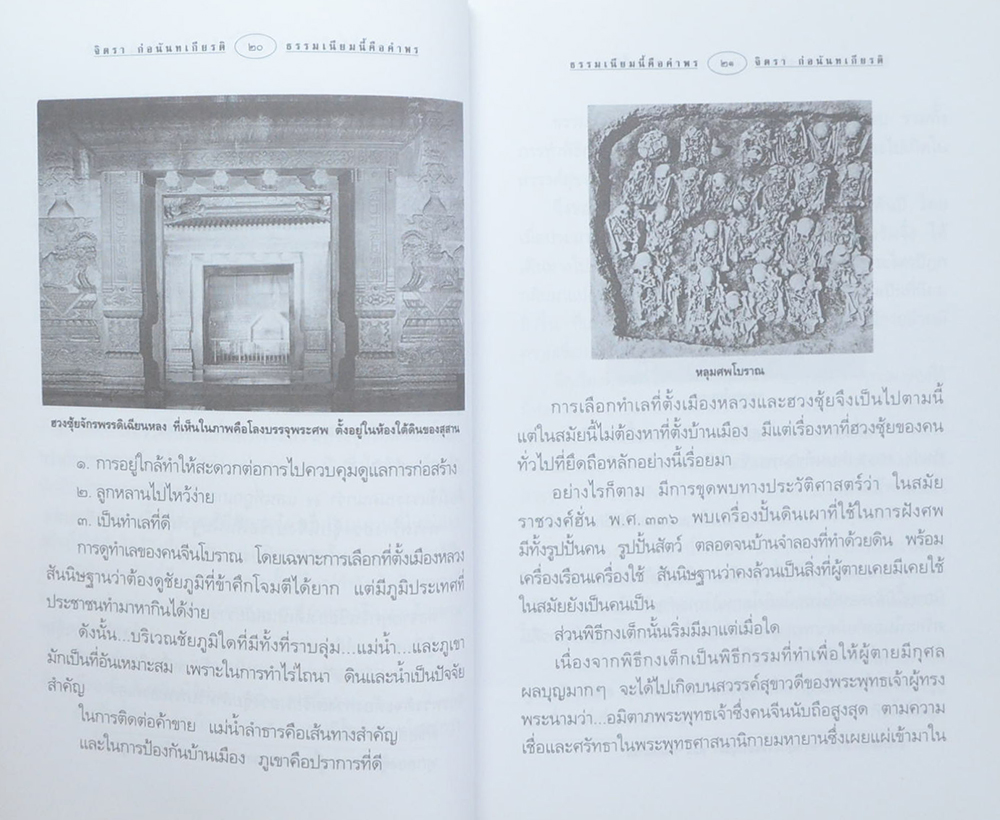 จิตรา ก่อนันทเกียรติ ๒๐ ธรรมเนียมนี้คือคำพร
ฮวงซุ้ยจักรพรรดิเฉียนหลง ที่เห็นในภาพคือโลงบรรจุพระศพ ตั้งอยู่ในห้องใต้ดินของสุสาน
๑. การอยู่ใกล้ทำให้สะดวกต่อการไปควบคุมดูแลการก่อสร้าง
๒. ลูกหลานไปไหว้ง่าย
๓. เป็นทำเลที่ดี
การดูทำเลของคนจีนโบราณ โดยเฉพาะการเลือกที่ตั้งเมืองหลวง
สันนิษฐานว่าต้องดูชัยภูมิที่ข้าศึกโจมตีได้ยาก แต่มีภูมิประเทศที่
ประชาชนทำมาหากินได้ง่าย
ดังนั้น...บริเวณชัยภูมิใดที่มีทั้งที่ราบลุ่ม...แม่น้ำ...และภูเขา
มักเป็นที่อันเหมาะสม เพราะในการทำไร่ไถนา ดินและน้ำเป็นปัจจัย
สำคัญ
ในการติดต่อค้าขาย แม่น้ำลำธารคือเส้นทางสำคัญ
และในการป้องกันบ้านเมือง ภูเขาคือปราการที่ดี
ธรรมเนียมนี้คือคำพร ๒๑ จิตรา ก่อนันทเกียรติ
หลุมศพโบราณ
การเลือกทำเลที่ตั้งเมืองหลวงและฮวงซุ้ยจึงเป็นไปตามนี้
แต่ในสมัยนี้ไม่ต้องหาที่ตั้งบ้านเมือง มีแต่เรื่องหาที่ฮวงซุ้ยของคน
ทั่วไปที่ยึดถือหลักอย่างนี้เรื่อยมา
อย่างไรก็ตาม มีการขุดพบทางประวัติศาสตร์ว่า ในสมัย
ราชวงศ์ฮั่น พ.ศ. ๓๓๖ พบเครื่องปั้นดินเผาที่ใช้ในการฝังศพ
มีทั้งรูปปั้นคน รูปปั้นสัตว์ ตลอดจนบ้านจำลองที่ทำด้วยดิน พร้อม
เครื่องเรือนเครื่องใช้ สันนิษฐานว่าคงล้วนเป็นสิ่งที่ผู้ตายเคยมีเคยใช้
ในสมัยยังเป็นคนเป็น
ส่วนพิธีกงเต็กนั้นเริ่มมีมาแต่เมื่อใด
เนื่องจากพิธีกงเต็กเป็นพิธีกรรมที่ทำเพื่อให้ผู้ตายมีกุศล
ผลบุญมากๆ จะได้ไปเกิดบนสวรรค์สุขาวดีของพระพุทธเจ้าผู้ทรง
พระนามว่า...อมิตาภพระพุทธเจ้าซึ่งคนจีนนับถือสูงสุด ตามความ
เชื่อและศรัทธาในพระพุทธศาสนานิกายมหายานซึ่งเผยแผ่เข้ามาใน